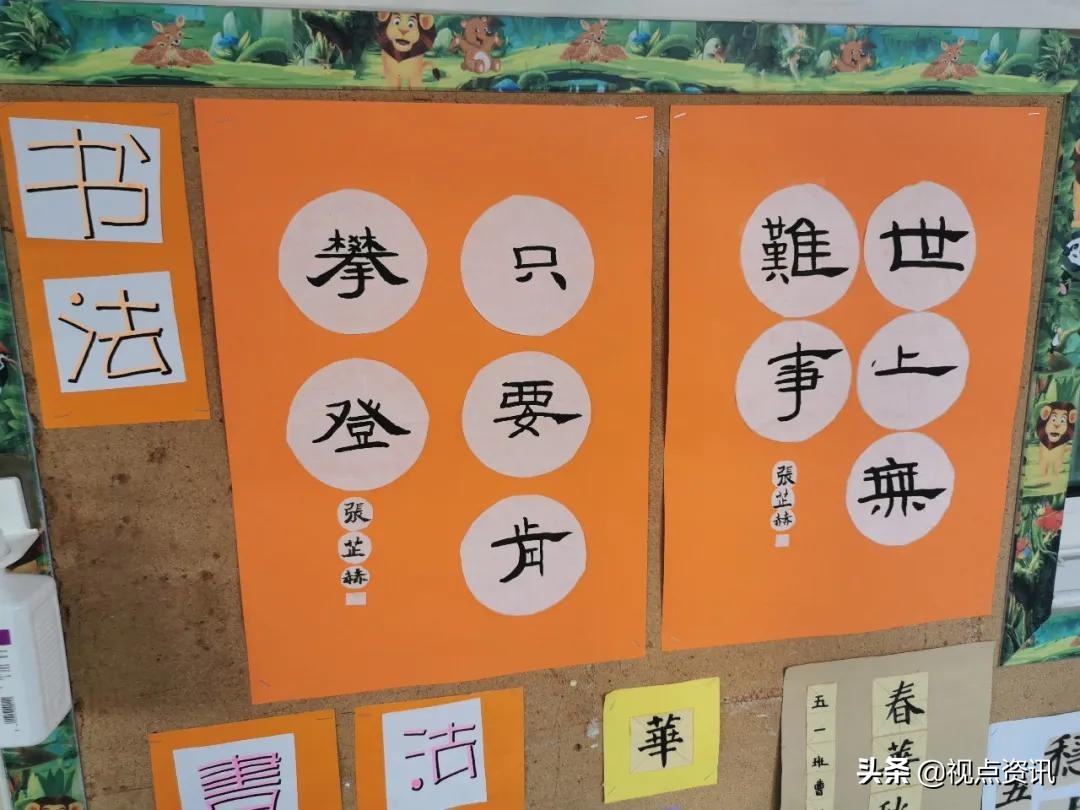 书
法
世上無
難事
張芷赫
只要肯
攀登
張芷赫
書
法
華
春華秋
五一班曹
穩
五
头条 @视点资讯